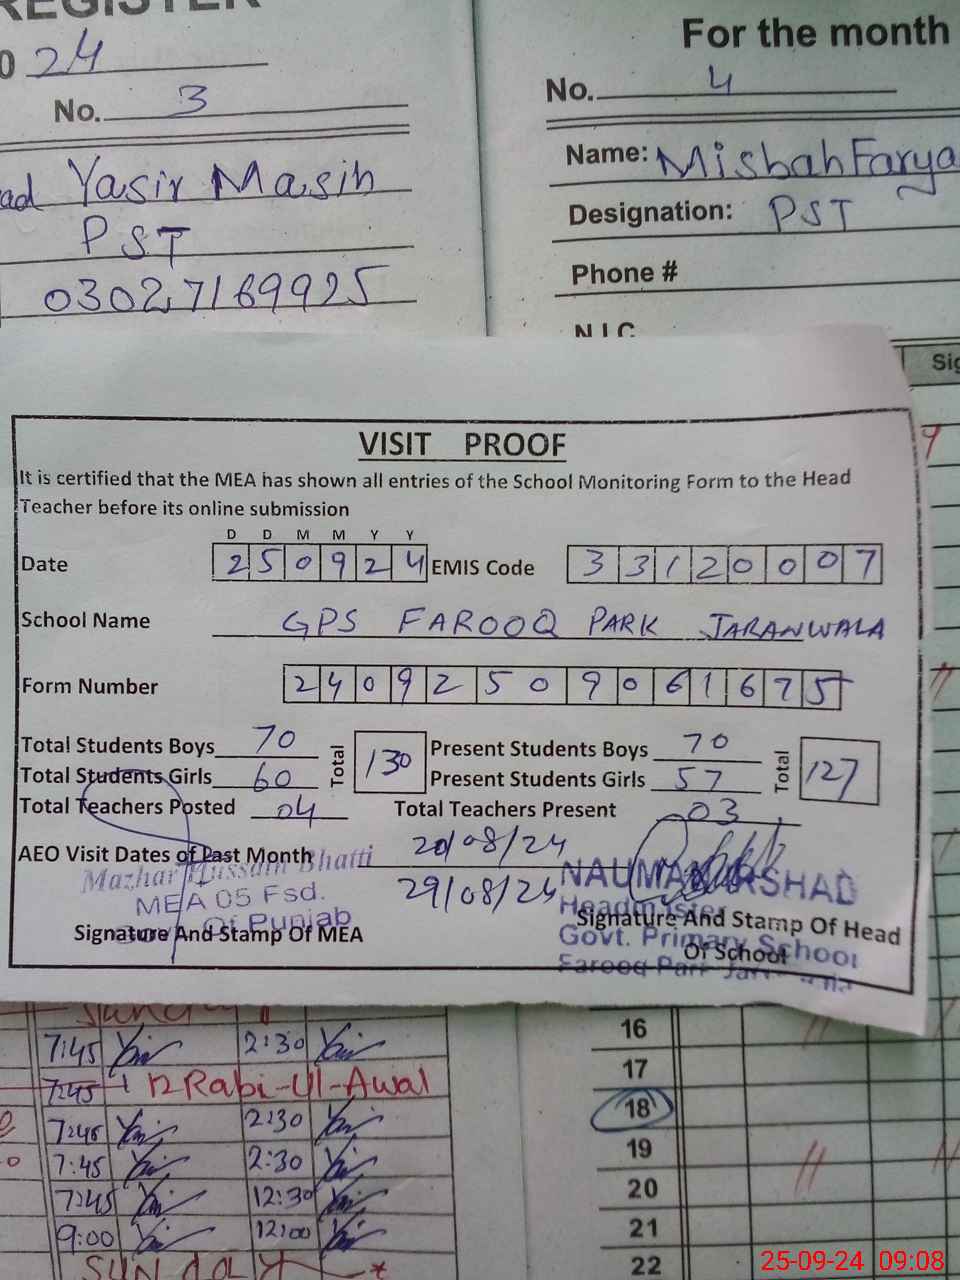 REGISTER
0 24
No. 3
ad Yasir Masih
PST
03027169925
For the month
No. 4
Name: Misbah Farya
Designation: PST
Phone #
N.I.C
Sig
VISIT PROOF
It is certified that the MEA has shown all entries of the School Monitoring Form to the Head
Teacher before its online submission
D D M M Y Y
Date 250924 EMIS Code 33120007
School Name GPS FAROOQ PARK JARANWALA
Form Number 24092509061675
Total Students Boys 70 Total 130 Present Students Boys 70 Total 127
Total Students Girls 60 Present Students Girls 57
Total Teachers Posted 04 Total Teachers Present 03
AEO Visit Dates of Past Month 20/08/24
29/08/24
Mazhar Hussain Bhatti
MEA 05 Fsd.
Of Punjab
Signature And Stamp Of MEA
NAUMAN ARSHAD
Headmaster
Govt. Primary School
Farooq Park
Signature And Stamp Of Head
Of School
Sunday
7:45 2:30
7:45 12 Rabi-ul-Awal
7:45 2:30
7:45 2:30
7:45 12:30
9:00 12:00
SUNDAY
16
17
18
19
20
21
22
25-09-24 09:08